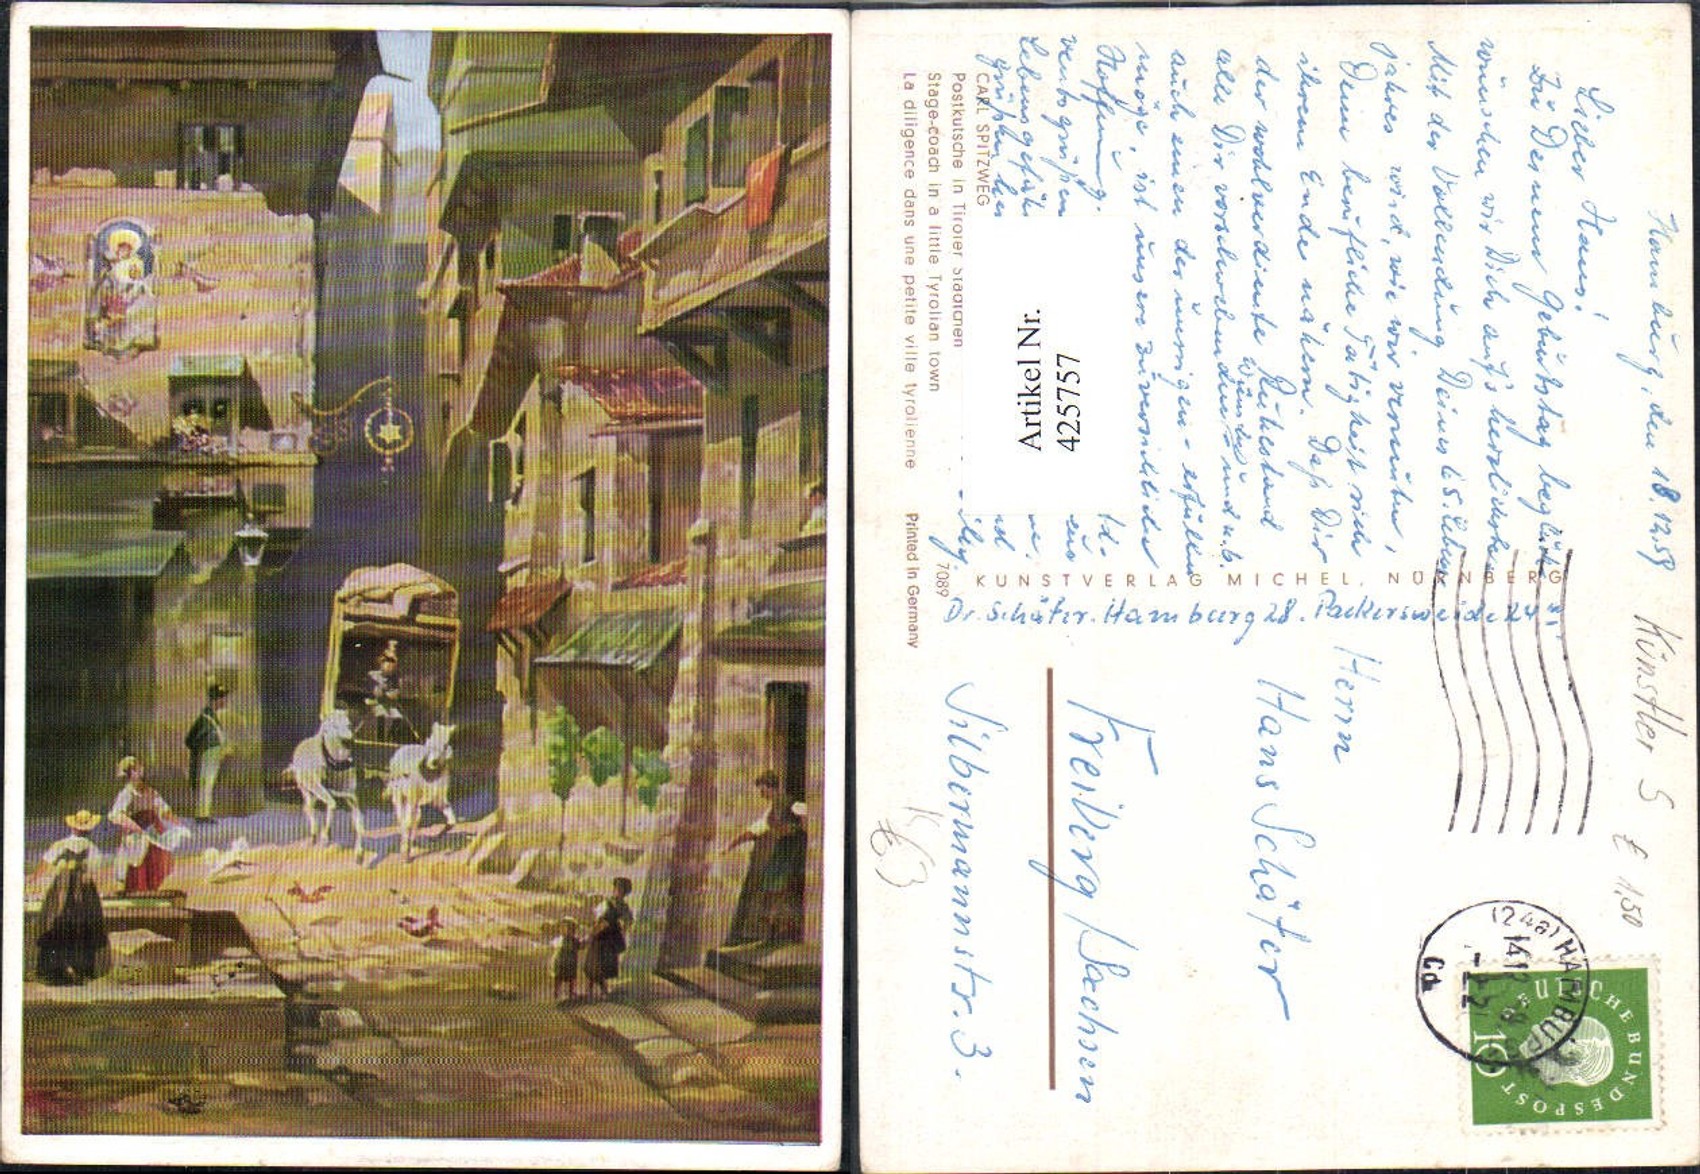 Hamburg, den 18.12.59
Lieber Hans!
Zu Deinem Geburtstag beglück-
wünschen wir Dich auf's herzlichste.
Mit der Vollendung Deines 65. Lebens-
jahres wird, wie wir vermuten,
Deine berufliche Tätigkeit sich
ihrem Ende nähern. Daß Dir
der wohlverdiente Ruhestand
alle Dir vorschwebenden Wünsche und u. b.
auch einen der unsrigen - erfüllen
möge, ist unsere zuversichtliche
Hoffnung.
CARL SPITZWEG
Postkutsche in Tiroler Städtchen
Stage-coach in a little Tyrolian town
La diligence dans une petite ville tyrolienne
Printed in Germany
7089
Artikel Nr.
425757
KUNSTVERLAG MICHEL, NÜRNBERG
Dr. Schäfer. Hamburg 28. Packersweide 24
Herrn
Hans Schäfer
Freiberg/Sachsen
Silbermannstr. 3.
Künstler S
€ 1,50
€ 3
(24a) HAMBURG
Cd
DEUTSCHE BUNDESPOST
10